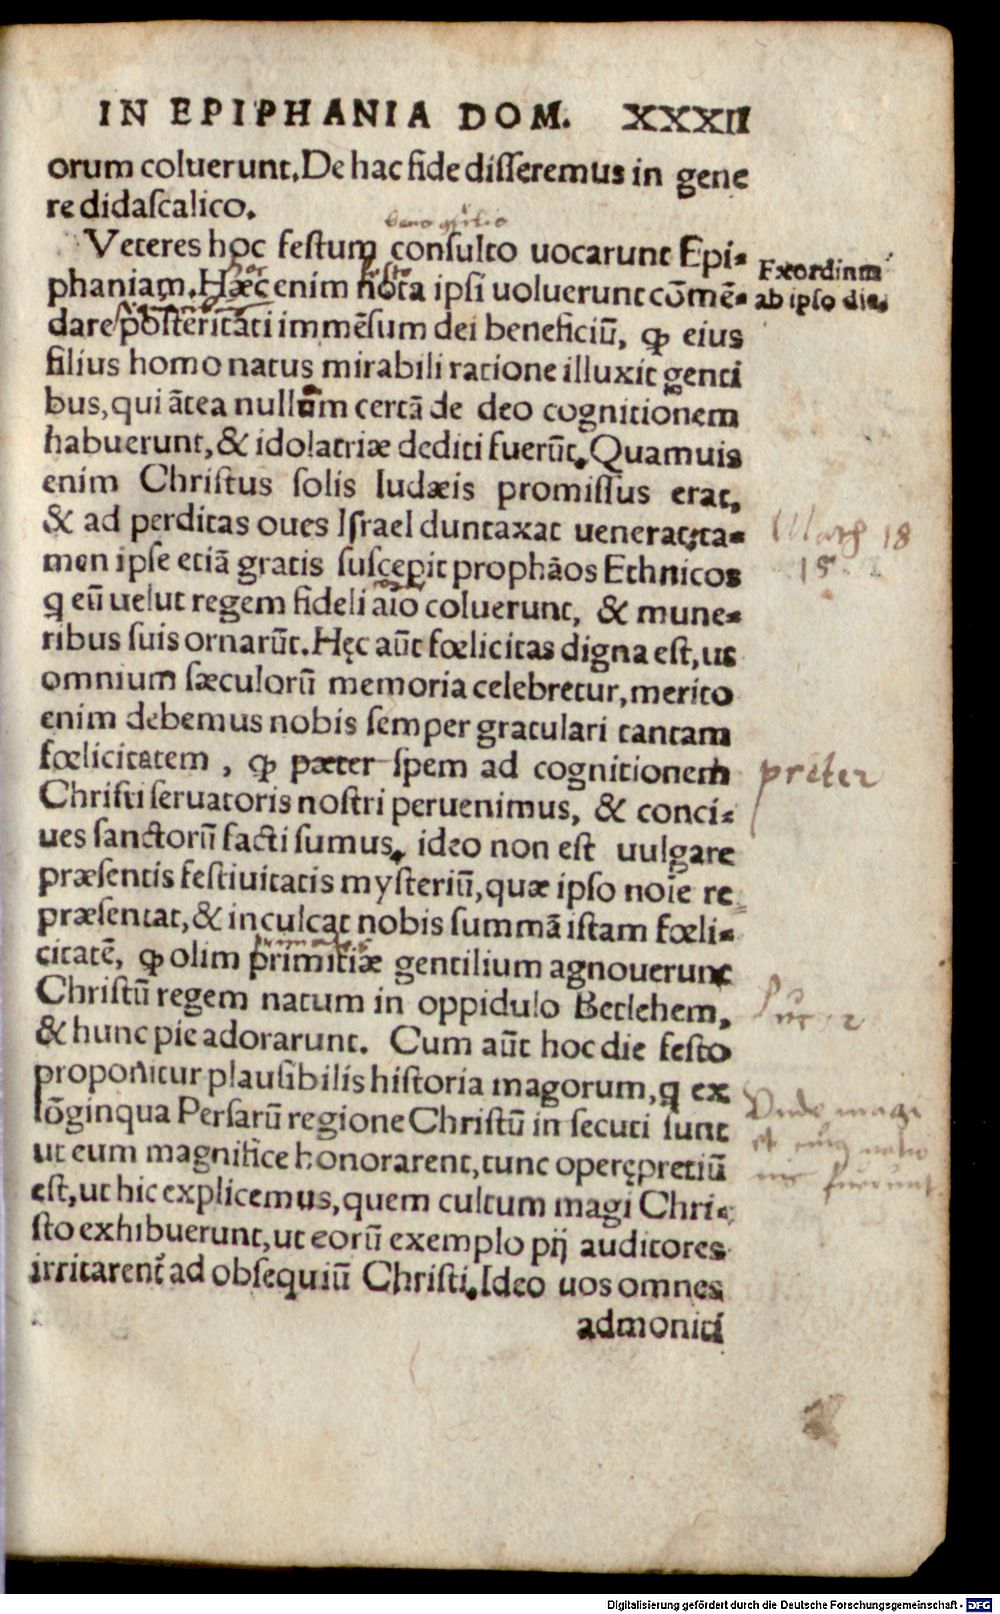 IN EPIPHANIA DOM. XXXII
orum coluerunt. De hac fide disseremus in gene
re didascalico.
Veteres hoc festum consulto uocarunt Epi-
phaniam. Hæc enim nota ipsi uoluerunt cōmē-
dare posteritati immēsum dei beneficiū, ꝙ eius
filius homo natus mirabili ratione illuxit genti
bus, qui ātea nullam certā de deo cognitionem
habuerunt, & idolatriæ dediti fuerūt. Quamuis
enim Christus solis Iudæis promissus erat,
& ad perditas oues Israel duntaxat uenerat, ta-
men ipse etiā gratis suscepit prophāos Ethnicos
q eū uelut regem fideli aīo coluerunt, & mune-
ribus suis ornarūt. Hęc aūt fœlicitas digna est, ut
omnium sæculorū memoria celebretur, merito
enim debemus nobis semper gratulari tantam
fœlicitatem, ꝙ pæter spem ad cognitionem
Christi seruatoris nostri peruenimus, & conci-
ues sanctorū facti sumus, ideo non est uulgare
præsentis festiuitatis mysteriū, quæ ipso noīe re
præsentat, & inculcat nobis summā istam fœli-
citatē, ꝙ olim primitiæ gentilium agnouerunt
Christū regem natum in oppidulo Betlehem,
& hunc pie adorarunt. Cum aūt hoc die festo
proponitur plausibilis historia magorum, q ex
lōginqua Persarū regione Christū in secuti sunt
ut eum magnifice honorarent, tunc operępretiū
est, ut hic explicemus, quem cultum magi Chri-
sto exhibuerunt, ut eorū exemplo pij auditores
irritarent ad obsequiū Christi. Ideo uos omnes
admoniti
Exordium
ab ipso die.
Math 18
15
preter
Luc 2
Unde magi
fuerunt
Digitalisierung gefördert durch die Deutsche Forschungsgemeinschaft - DFG